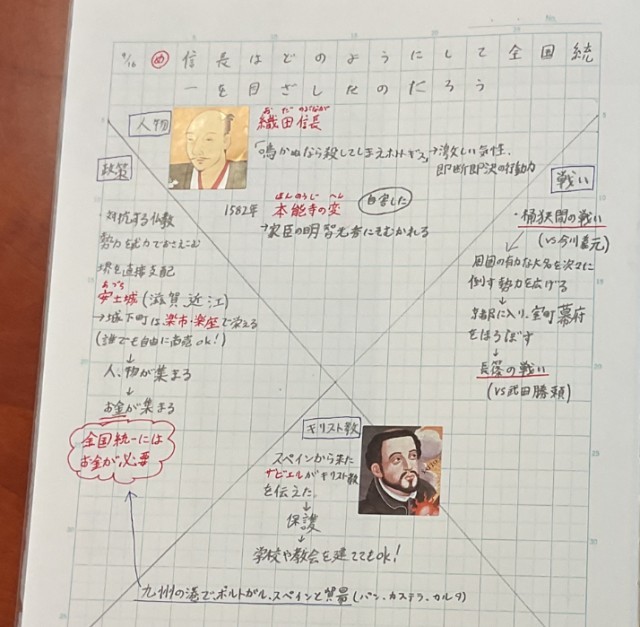 9/16 め 信長はどのようにして全国統
一を目ざしたのだろう
人物
おだ のぶなが
織田信長
「鳴かぬなら殺してしまえホトトギス」→激しい気性、
即断即決の行動力
ほんのうじ へん
1582年 本能寺の変 自害した
→家臣の明智光秀にそむかれる
政策
・対抗する仏教
勢力を武力でおさえこむ
堺を直接支配
あづち
安土城(滋賀近江)
→城下町は楽市・楽座で栄える
(誰でも自由に商売ok!)
↓
人、物が集まる
↓
お金が集まる
全国統一には
お金が必要
戦い
・桶狭間の戦い
(vs今川義元)
周囲の有力な大名を次々に
倒す勢力を広げる
↓
京都に入り、室町幕府
をほろぼす
↓
長篠の戦い
(vs武田勝頼)
キリスト教
スペインから来た
ザビエルがキリスト教
を伝えた
↓
保護
↓
学校や教会を建ててもok!
九州の港で、ポルトガル、スペインと貿易(パン、カステラ、カルタ)